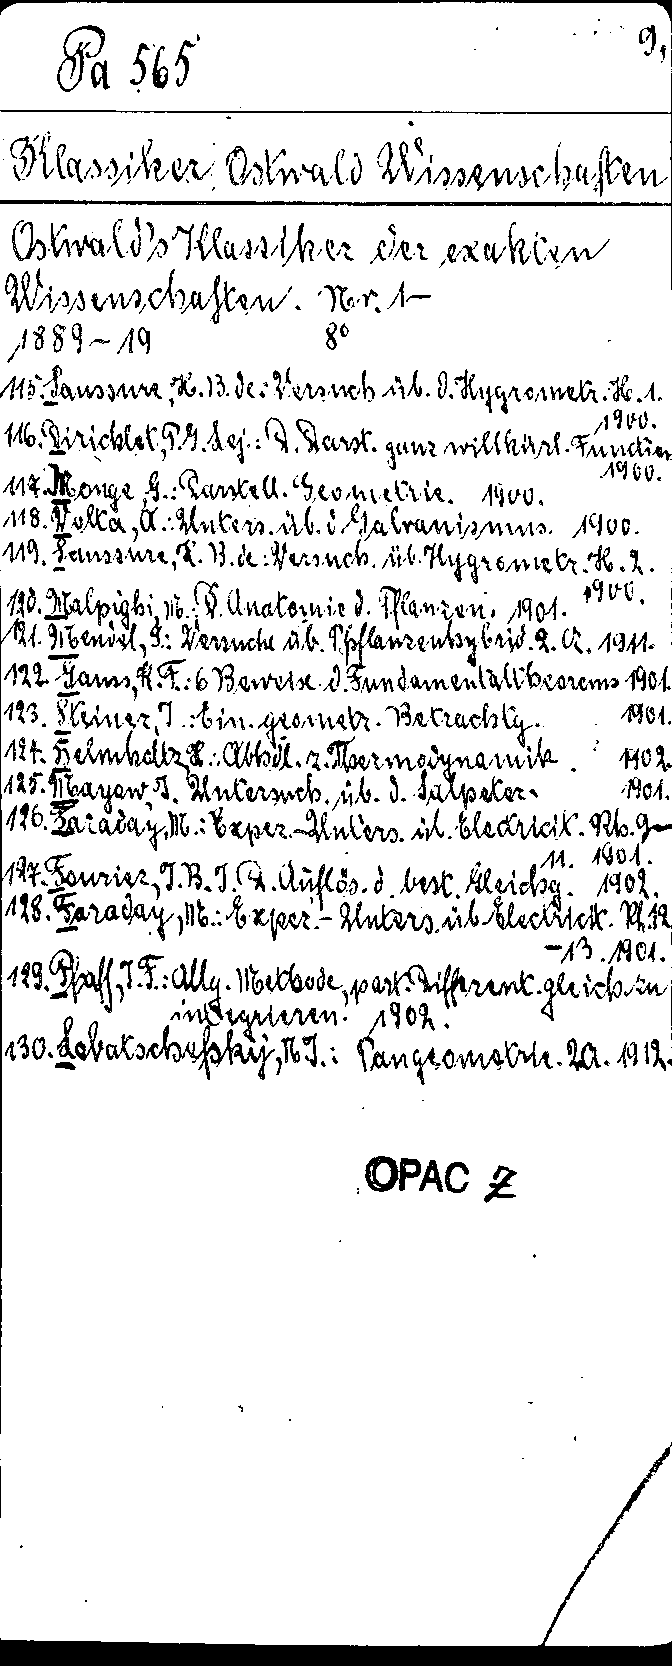 9,
Pa 565
Klassiker Ostwald Wissenschaften
Ostwald's Klassiker der exakten
Wissenschaften. Nr. 1-
1889-19 8°
115. Saussure, H. B. de: Versuch üb. d. Hygrometr. H. 1.
1900.
116. Dirichlet, P. G. Lej.: D. Darst. ganz willkürl. Function
1900.
117. Monge, G.: Darstell. Geometrie. 1900.
118. Volta, A.: Unters. üb. d. Galvanismus. 1900.
119. Saussure, H. B. de: Versuch. üb. Hygrometr. H. 2.
1900.
120. Malpighi, M.: D. Anatomie d. Pflanzen. 1901.
121. Mendel, G.: Versuche üb. Pflanzenhybrid. 2. A. 1911.
122. Gauss, K. F.: 6 Beweise d. Fundamentaltheorems 1901.
123. Steiner, J.: Ein. geometr. Betrachtg. 1901.
124. Helmholtz, H.: Abhdl. z. Thermodynamik. 1902.
125. Mayow, J. Untersuch. üb. d. Salpeter. 1901.
126. Faraday, M.: Exper.-Unters. üb. Electricit. Rh. 9-
11. 1901.
127. Fourier, J. B. J. D. Auflös. d. best. Gleichg. 1902.
128. Faraday, M.: Exper.-Unters. üb. Electricit. Rh. 12
-13. 1901.
129. Pfaff, J. F.: Allg. Methode, part. Different. gleich. zu
integrieren. 1902.
130. Lobatschefskij, N. J.: Pangeometrie. 2. A. 1912.
OPAC Z